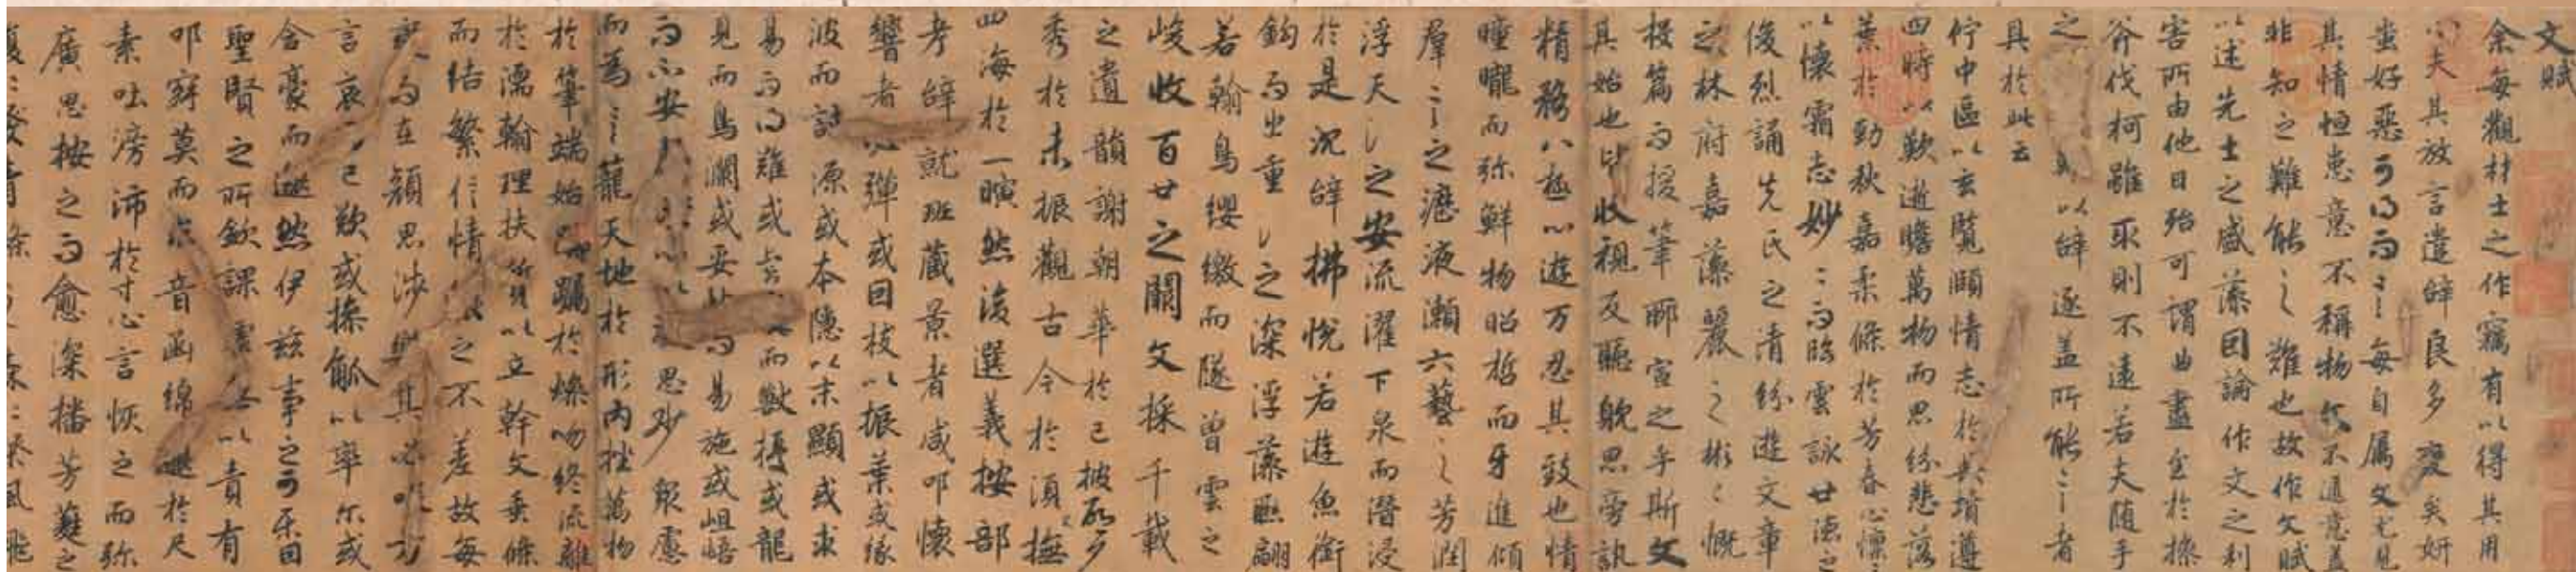 文賦
余每觀材士之作竊有以得其用
心夫其放言遣辭良多變矣妍
蚩好惡可得而言每自属文尤見
其情恒患意不稱物文不逮意盖
非知之難能之難也故作文賦
以述先士之盛藻因論作文之利
害所由他日殆可謂曲盡至於操
斧伐柯雖取則不遠若夫隨手
之以辞逐盖所能言者
具於此云
佇中區以玄覽頤情志於典墳遵
四時以歎逝瞻萬物而思紛悲落
葉於勁秋嘉柔條於芳春心懍〻
以懷霜志妙〻而臨雲詠世德之
俊烈誦先氏之清紛遊文章
之林府嘉藻麗之彬〻慨
投篇而援筆聊宣之乎斯文
其始也皆收視反聽耽思旁訊
精騖八極心遊万忍其致也情
曈曨而弥鮮物昭晢而互進傾
羣言之瀝液漱六藝之芳潤
浮天淵之安流濯下泉而潛浸
於是沉辞怫悅若遊魚銜
鈎而出重淵之深浮藻聯翩
若翰鳥纓繳而墜曾雲之
峻收百世之闕文採千載
之遺韻謝朝華於已披啓夕
秀於未振觀古今於須臾撫
四海於一瞬然後選義按部
考辞就班藏景者咸叩懷
響者必彈或因枝以振葉或緣
波而討源或本隱以末顯或求
易而得難或虎變而獸擾或龍
見而鳥瀾或妥帖而易施或岨峿
而不安思眇眾慮
而為言籠天地於形內挫萬物
於筆端始躑躅於燥吻終流離
於濡翰理扶質以立幹文垂條
而結繁信情貌之不差故每
變而在顏思涉樂其必咲方
言哀而已歎或操觚以率尔或
含豪而邈然伊茲事之可樂固
聖賢之所欽課虛無以責有
叩寂莫而求音函綿邈於尺
素吐滂沛於寸心言恢之而弥
廣思按之而愈深播芳蕤之